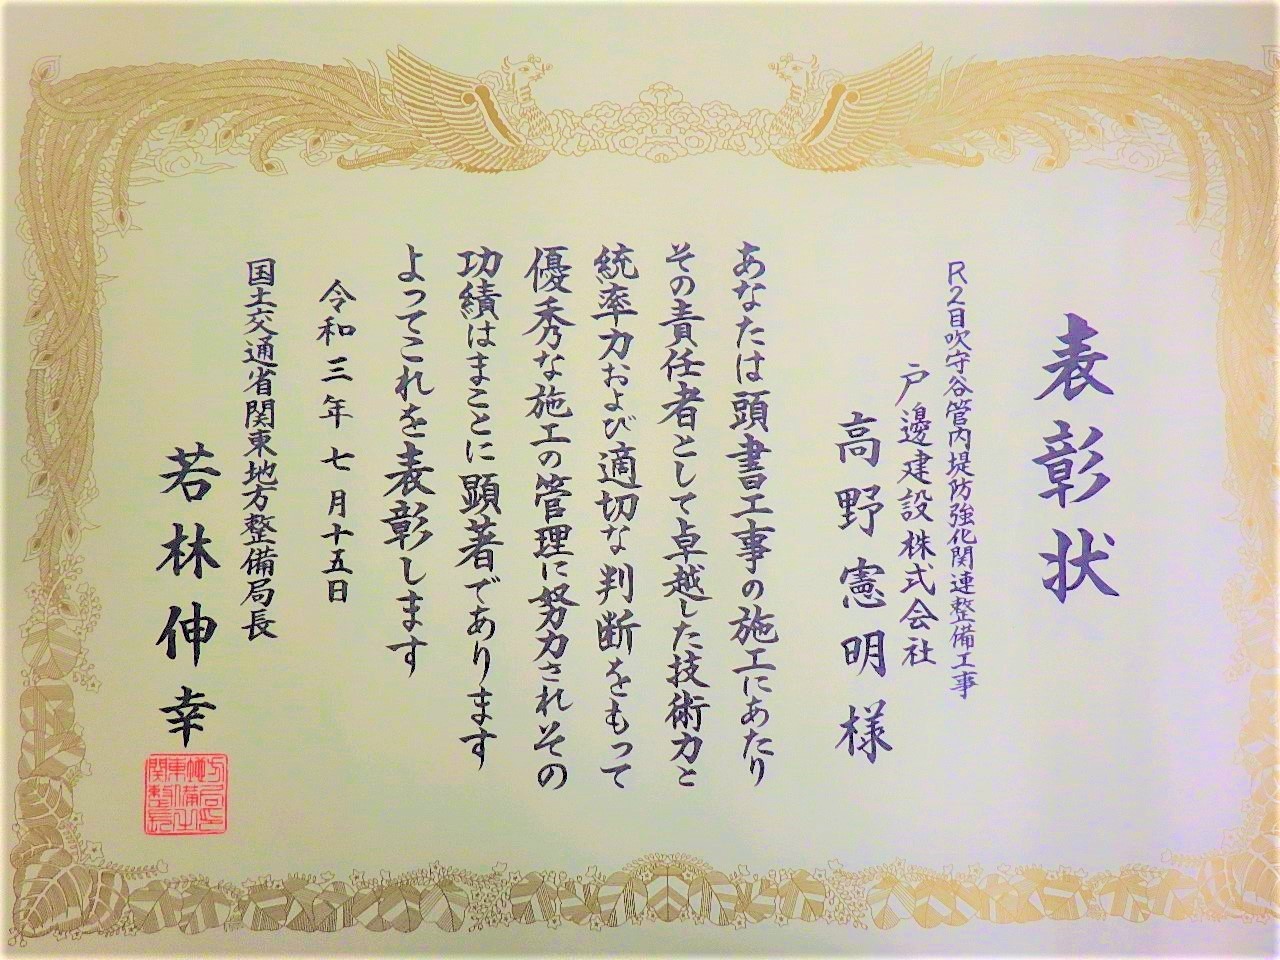 表彰状
R2目吹守谷管内堤防強化関連整備工事
戸邊建設株式会社
高野憲明様
あなたは頭書工事の施工にあたり
その責任者として卓越した技術力と
統率力および適切な判断をもって
優秀な施工の管理に努力されその
功績はまことに顕著であります
よってこれを表彰します
令和三年七月十五日
国土交通省関東地方整備局長
若林伸幸